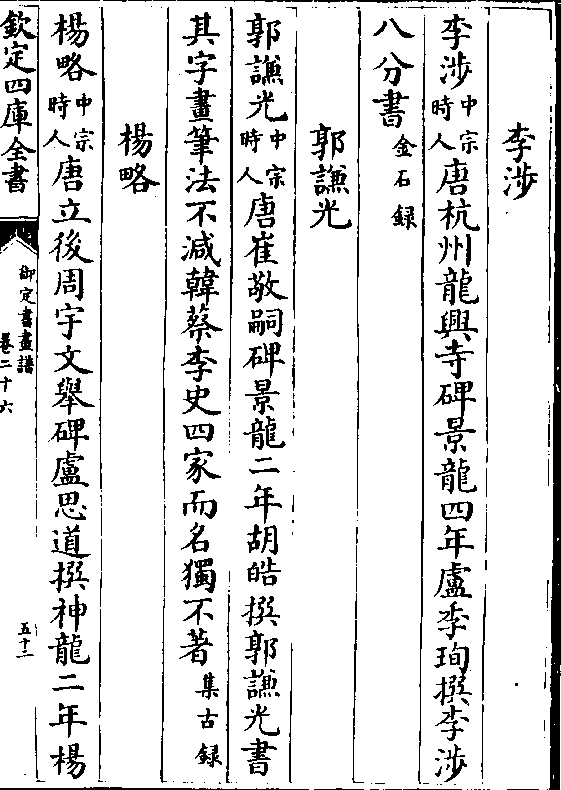 李渉
李渉中宗時人唐杭州龍興寺碑景龍四年盧李珣撰李渉
八分書金石録
郭謙光
郭謙光中宗時人唐崔敬嗣碑景龍二年胡皓撰郭謙光書
其字畫筆法不減韓蔡李史四家而名獨不著集古録
楊略
楊略中宗時人唐立後周宇文舉碑盧思道撰神龍二年楊
欽定四庫全書
御定書畫譜
卷二十六
五十二